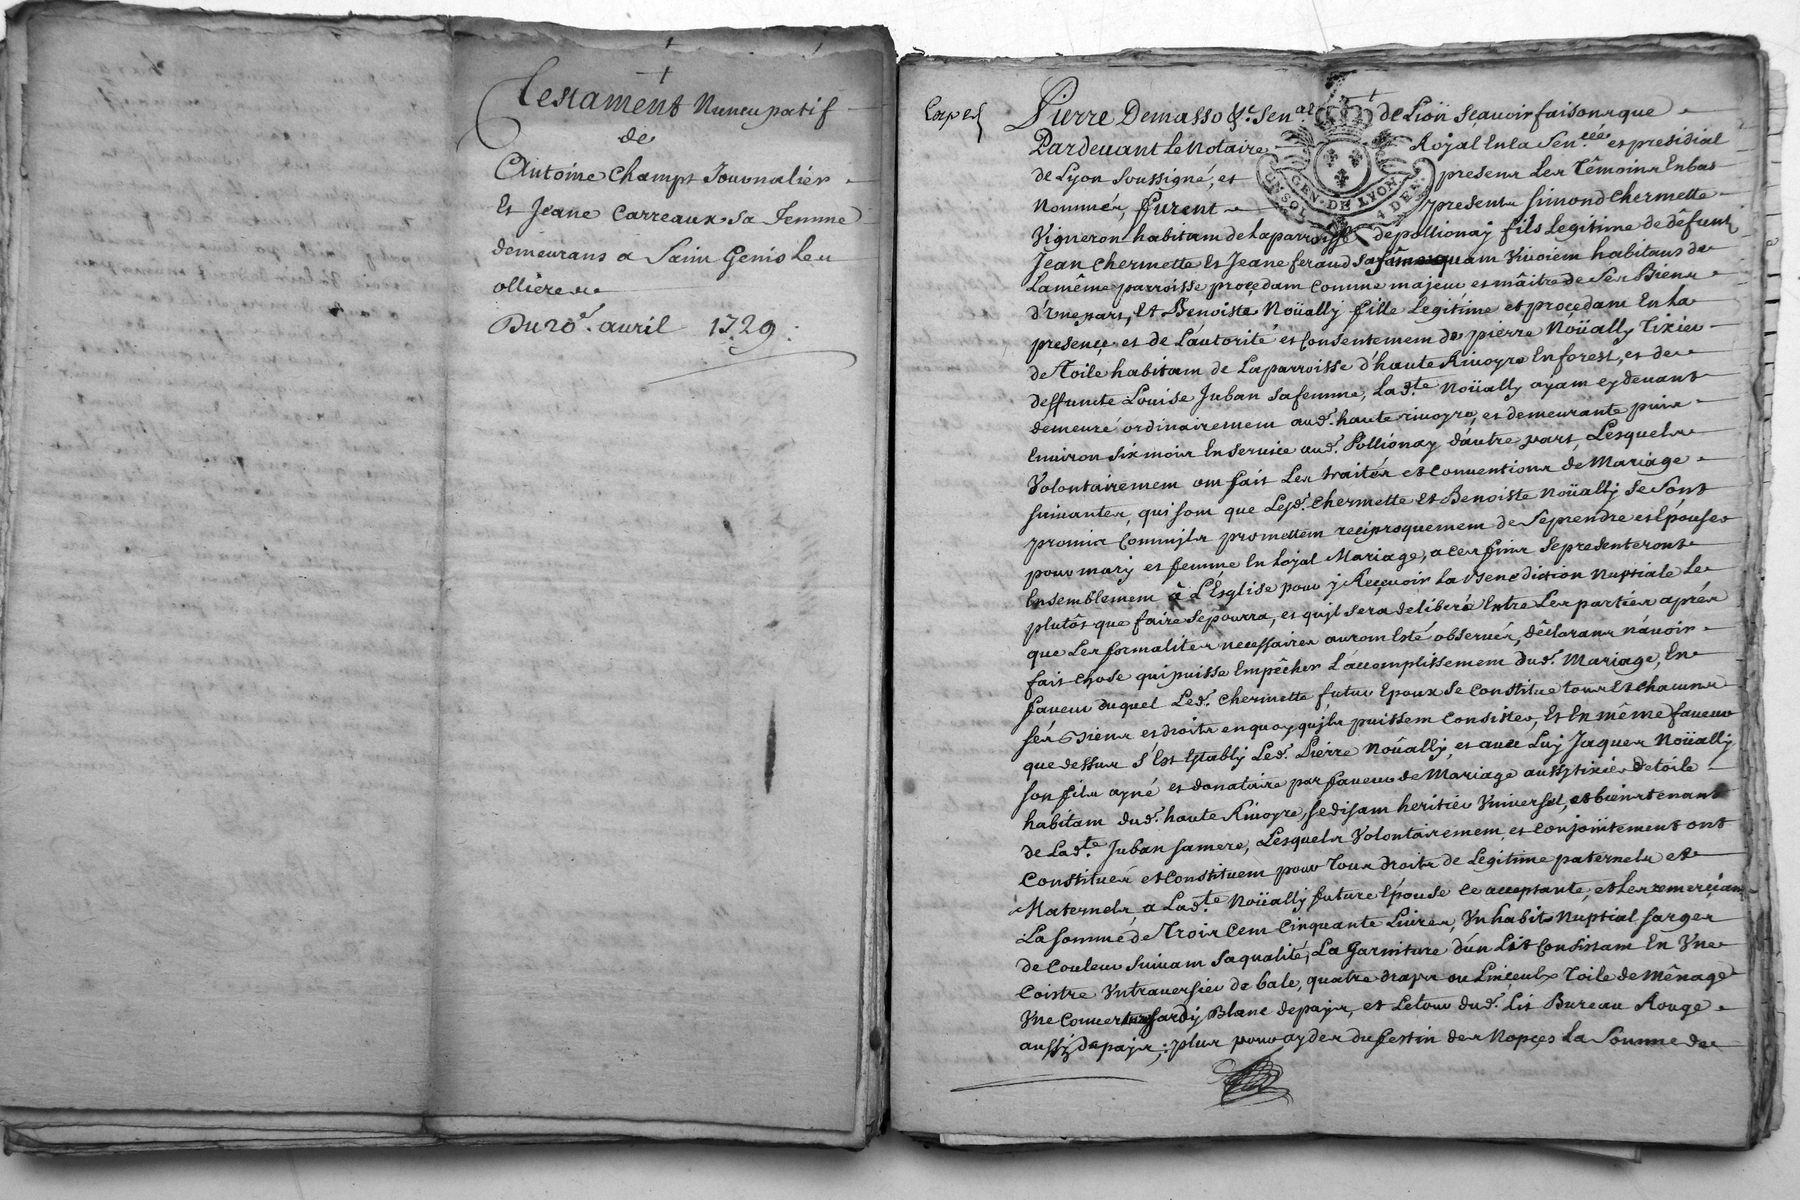 Testament Nuncupatif
de
Antoine Champt Journalier
Et Jeane Carreaux sa femme
demeurans a Saint Genis Les
ollieres
Du 20e. avril 1729.
Pierre Demasso &c. Senal. de Lïon Scavoir faisons que
Pardevant Le Notaire Royal En la Sen.cée et presidial
de Lyon Soussigné, et presens Les Têmoins En bas
Nommés, furent presents Simond Chermette
Vigneron habitant de La parroisse de pollionay fils Legitime de dêfunt
Jean Chermette Et Jeane feraud sa femme quam Vivoient habitans de
La même parroisse procedant Comme majeur et mâitre de Ses Biens
d'Vne part, Et Benoiste Noüally fille Legitime et procedant En La
presence et de L'autorité et Consentement de pierre Noüally Tixier
de Toile habitant de La parroisse d'haute Rivoyre En forest, et de
deffuncte Louise Juban sa femme, La d.te Noüally ayant cy devant
demeuré ordinairement aud. haute rivoyre, et demeurante puis
Environ Six mois En service aud. Pollionay d'autre part, Lesquels
Volontairement ont fait Les traités et Conventions de Mariage
suivantes, qui sont que Led. Chermette Et Benoiste Noüally se Sont
promis Comm'ils promettent reciproquement de Se prendre et Epouser
pour mary et femme En Loyal Mariage, a ces fins Se presenteront
Ensemblement à L'Esglise pour y Recevoir La Benediction Nuptiale Le
plutôt que faire Se pourra, et qu'jl sera deliberé Entre Les parties aprés
que Les formalités necessaires auront Esté observés, dêclarans n'avoir
fait chose qui puisse Empêcher L'accomplissement dud. Mariage, En
faveur duquel Led. Chermette futur Epoux Se Constitue tous Et chacuns
sés Biens et droits en quoy qu'jls puissent Consister, Et En même faveur
que dessus S'Est Etably Led. Pierre Noüally, et avec Luy Jaques Noüally
son fils ayné et donataire par faveur de Mariage aussy tixier de toile
habitant dud. haute Rivoyre, se disant heritier Vniversel, et bien tenant
de La d.te Juban sa mere, Lesquels Volontairement et Conjointement ont
Constitués et Constituent pour Tous droits de Legitime paternels et
Maternels, a La d.te Noüally future Epouse Ce acceptante, et Les remerciant
La somme de Trois Cent Cinquante Livres, Vn habit Nuptial sarges
de Couleur Suivant Sa qualité, La Garniture d'un Lit Consistant En Vne
Coistre Vn traversier de bale, quatre draps ou Linceulx Toile de Mênage
Vne Couverte sardy Blanc de pays, et Le tour dud. Lit Bureau Rouge
aussy de pays; plus pour ayder du festin des Nopces La Somme de